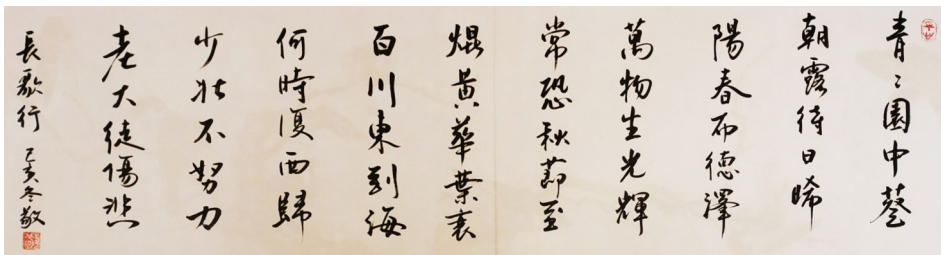 青〻園中葵
朝露待日晞
陽春布德澤
萬物生光輝
常恐秋節至
焜黄華葉衰
百川東到海
何時復西歸
少壯不努力
老大徒傷悲
長歌行
己亥冬敬